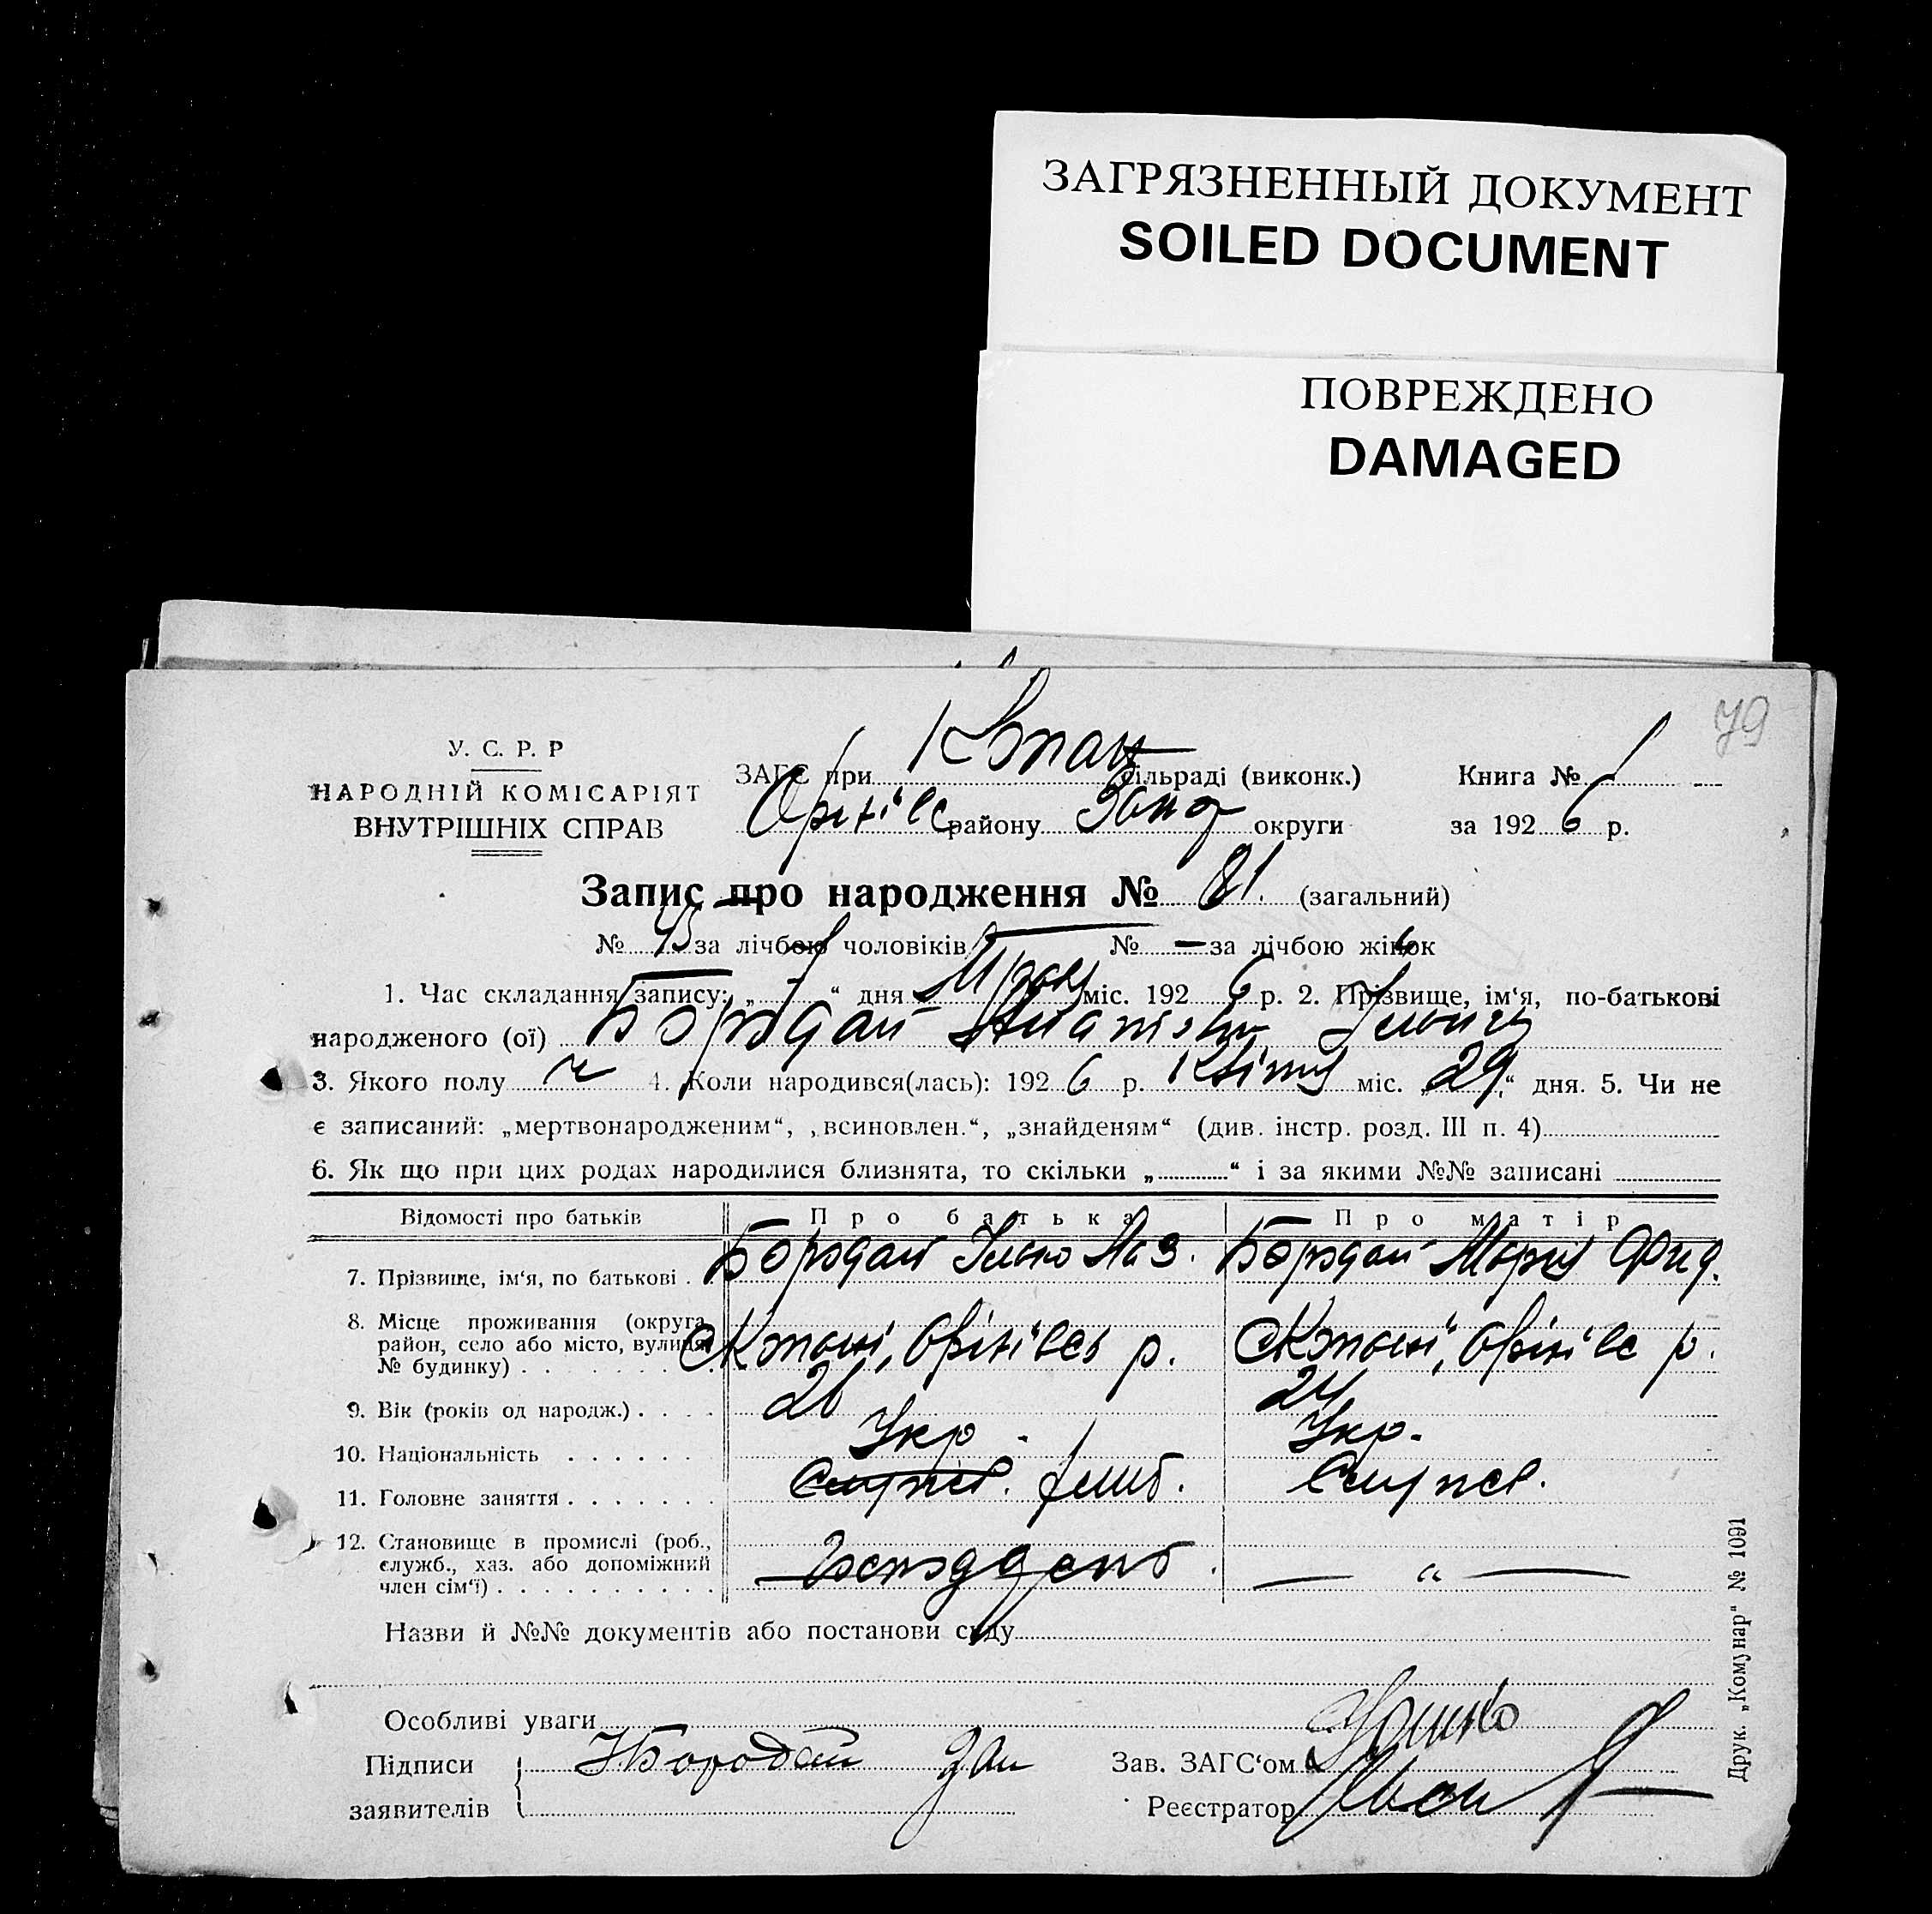 ЗАГРЯЗНЕННЫЙ ДОКУМЕНТ
SOILED DOCUMENT
ПОВРЕЖДЕНО
DAMAGED
79
У. С. Р. Р
НАРОДНІЙ КОМІСАРІЯТ
ВНУТРІШНІХ СПРАВ
ЗАГС при Копан сільраді (виконк.) Книга № 1
Оріхівс району округи за 1926 р.
Запис про народження № 81. (загальний)
№ 45 за лічбою чоловіків № — за лічбою жінок
1. Час складання запису: „ 7 “ дня міс. 1926 р. 2. Прізвище, ім'я, по-батькові
народженого (ої) Бородай
3. Якого полу ч 4. Коли народився(лась): 1926 р. Квітня міс. „29“ дня. 5. Чи не
є записаний: „мертвонародженим“, „всиновлен.“, „знайденям“ (див. інстр. розд. III п. 4)
6. Як що при цих родах народилися близнята, то скільки „ “ і за якими №№ записані
Відомості про батьків Про батька Про матір
7. Прізвище, ім'я, по батькові . Бородай Ілько Лаз. Бородай Марія Фид.
8. Місце проживання (округа, район, село або місто, вулиця, № будинку) . Оріхівсь р. Оріхівс р.
9. Вік (років од народж.) . . . . 26 24
10. Національність . . . . . . Укр. Укр.
11. Головне заняття . . . . . . .
12. Становище в промислі (роб., служб., хаз. або допоміжний член сім'ї) . . . . . . . . . . — „ —
Назви й №№ документів або постанови суду
Особливі уваги
Підписи заявителів І Бородай
Зав. ЗАГС'ом
Реєстратор
Друк. „Комунар“ № 1091